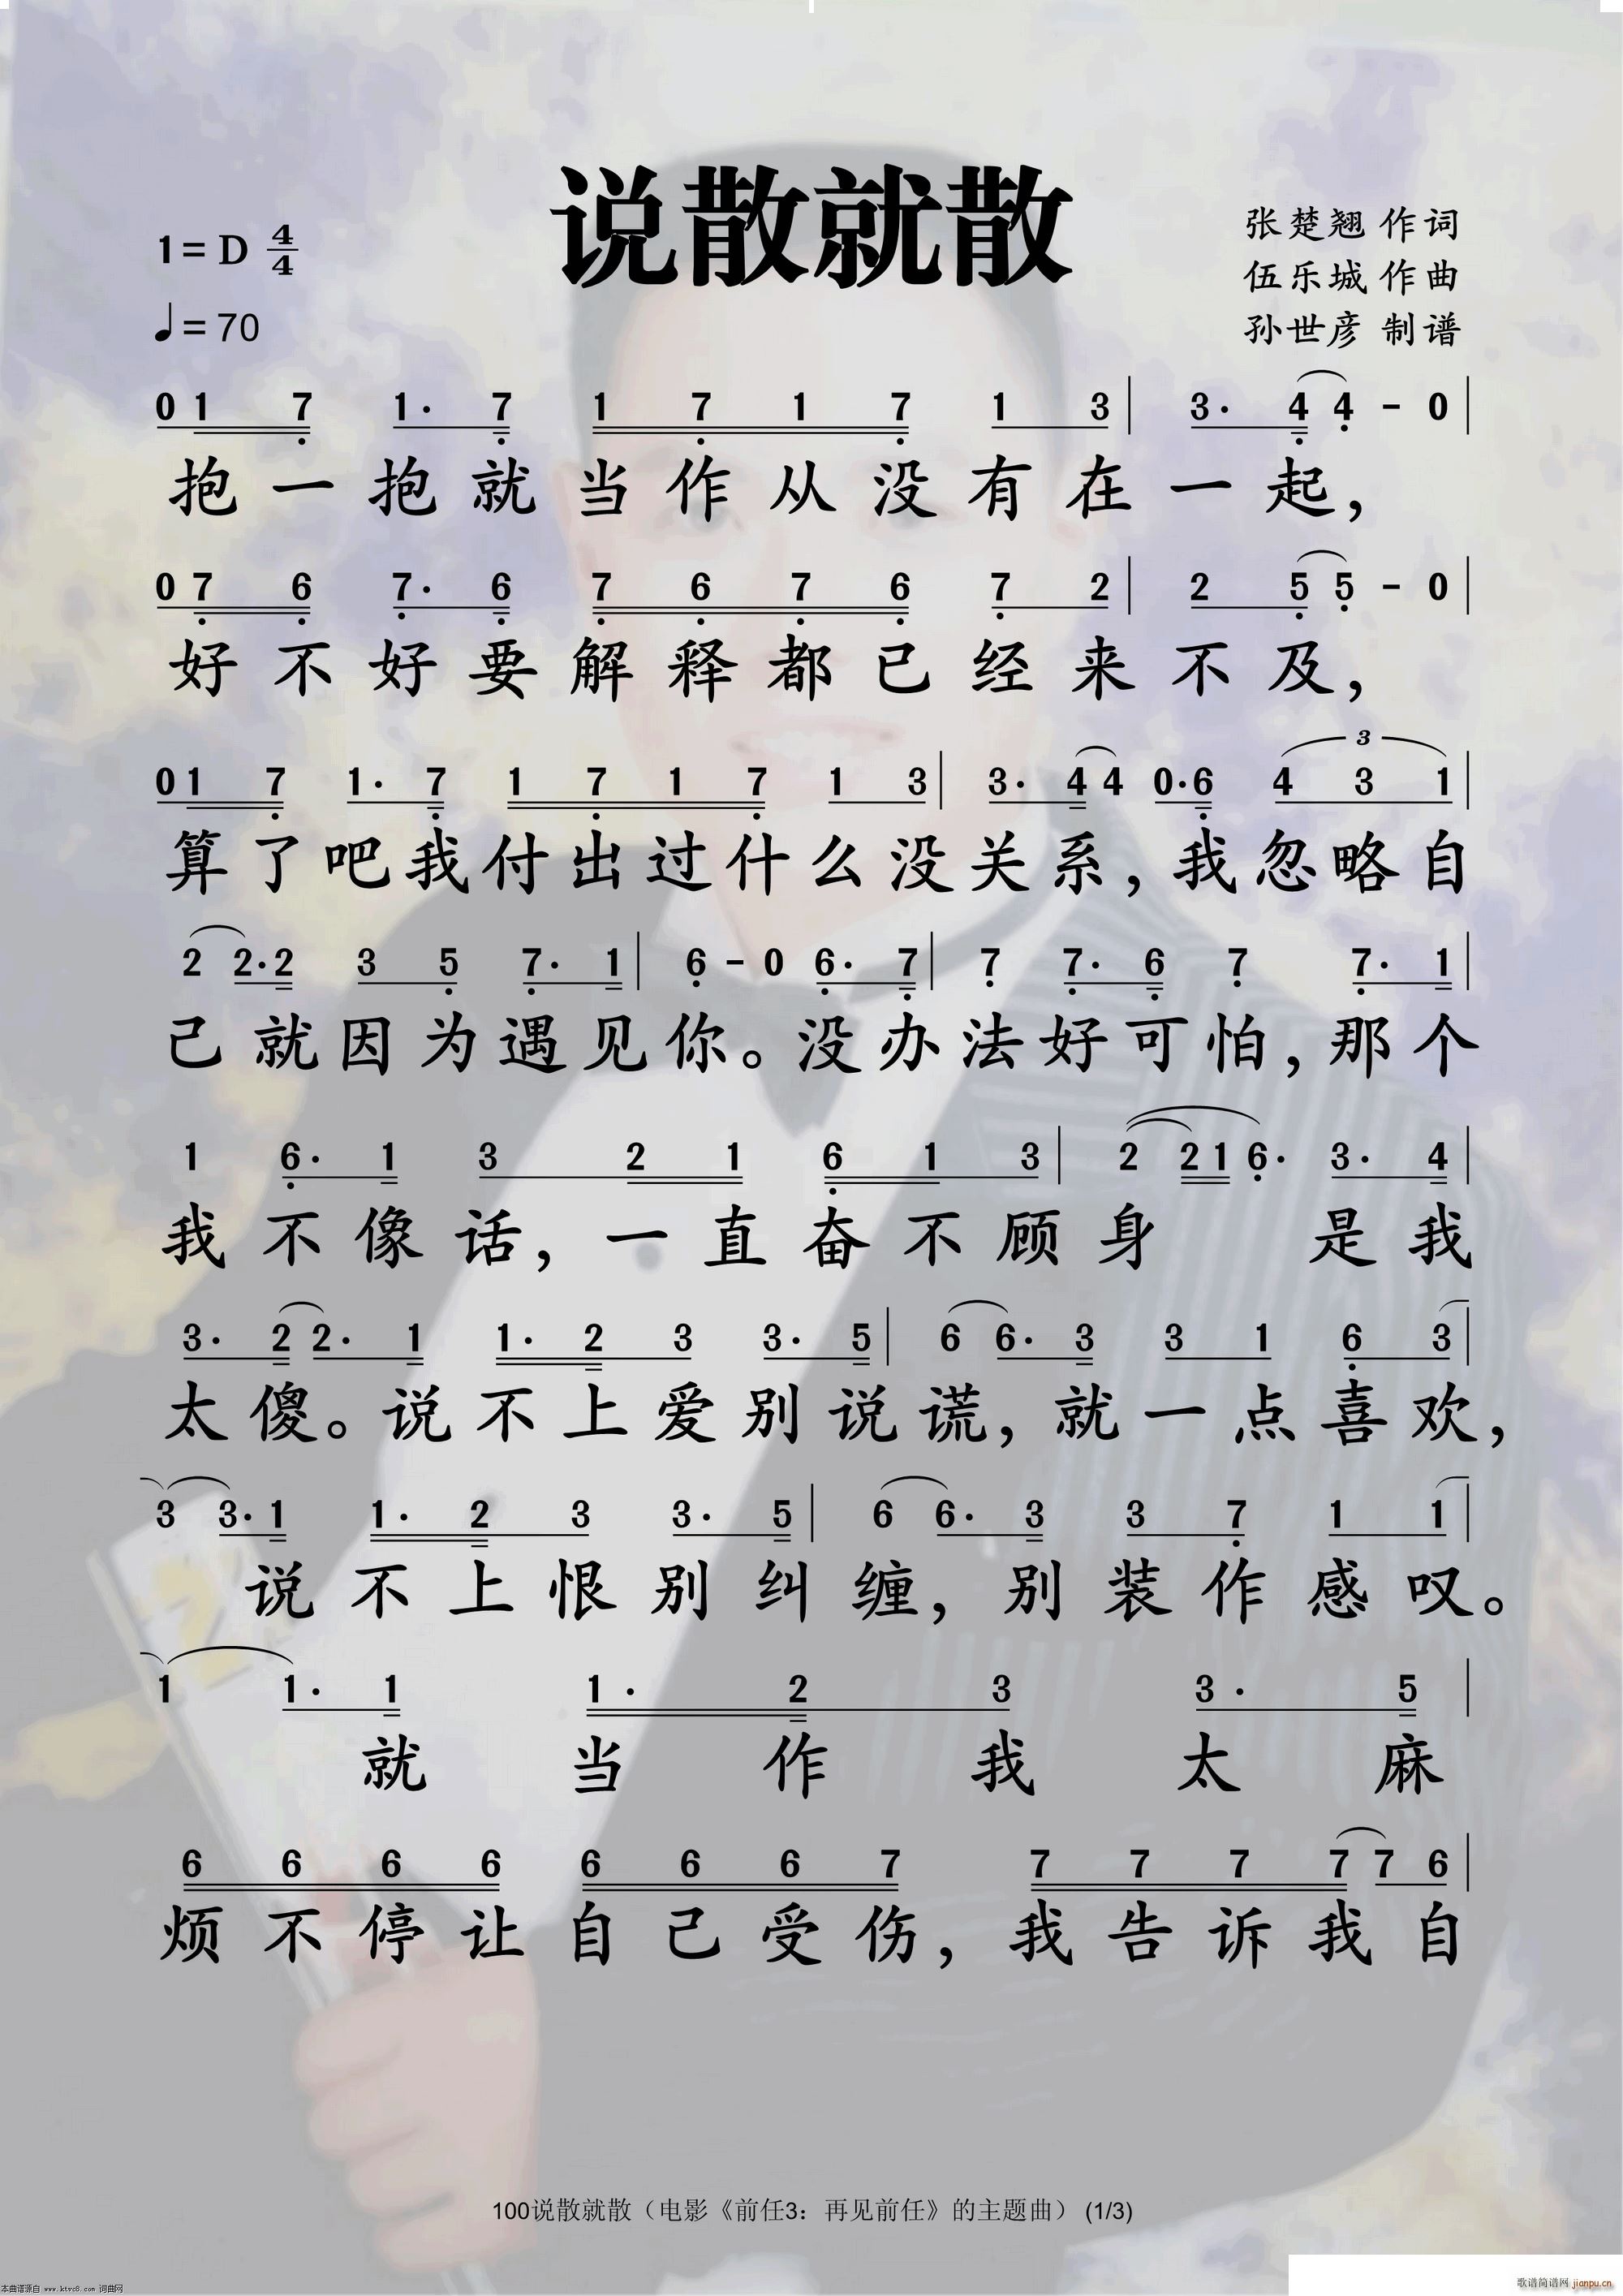 说散就散
1=D 4/4
♩=70
张楚翘 作词
伍乐城 作曲
孙世彦 制谱
0 1 7 1· 7 1 7 1 7 1 3 | 3· 4 4 - 0 |
抱一抱就当作从没有在一起，
0 7 6 7· 6 7 6 7 6 7 2 | 2 5 5 - 0 |
好不好要解释都已经来不及，
0 1 7 1· 7 1 7 1 7 1 3 | 3· 4 4 0· 6 4 3 1 |
3
算了吧我付出过什么没关系，我忽略自
2 2· 2 3 5 7· 1 | 6 - 0 6· 7 | 7 7· 6 7 7· 1 |
己就因为遇见你。没办法好可怕，那个
1 6· 1 3 2 1 6 1 3 | 2 2 1 6· 3· 4 |
我不像话，一直奋不顾身 是我
3· 2 2· 1 1· 2 3 3· 5 | 6 6· 3 3 1 6 3 |
太傻。说不上爱别说谎，就一点喜欢，
3 3· 1 1· 2 3 3· 5 | 6 6· 3 3 7 1 1 |
说不上恨别纠缠，别装作感叹。
1 1· 1 1· 2 3 3· 5 |
就当作我太麻
6 6 6 6 6 6 6 7 7 7 7 7 7 6 |
烦不停让自己受伤，我告诉我自
100说散就散（电影《前任3：再见前任》的主题曲） (1/3)
本曲谱源自 www.ktvc8.com 词曲网
歌谱简谱网 jianpu.cn